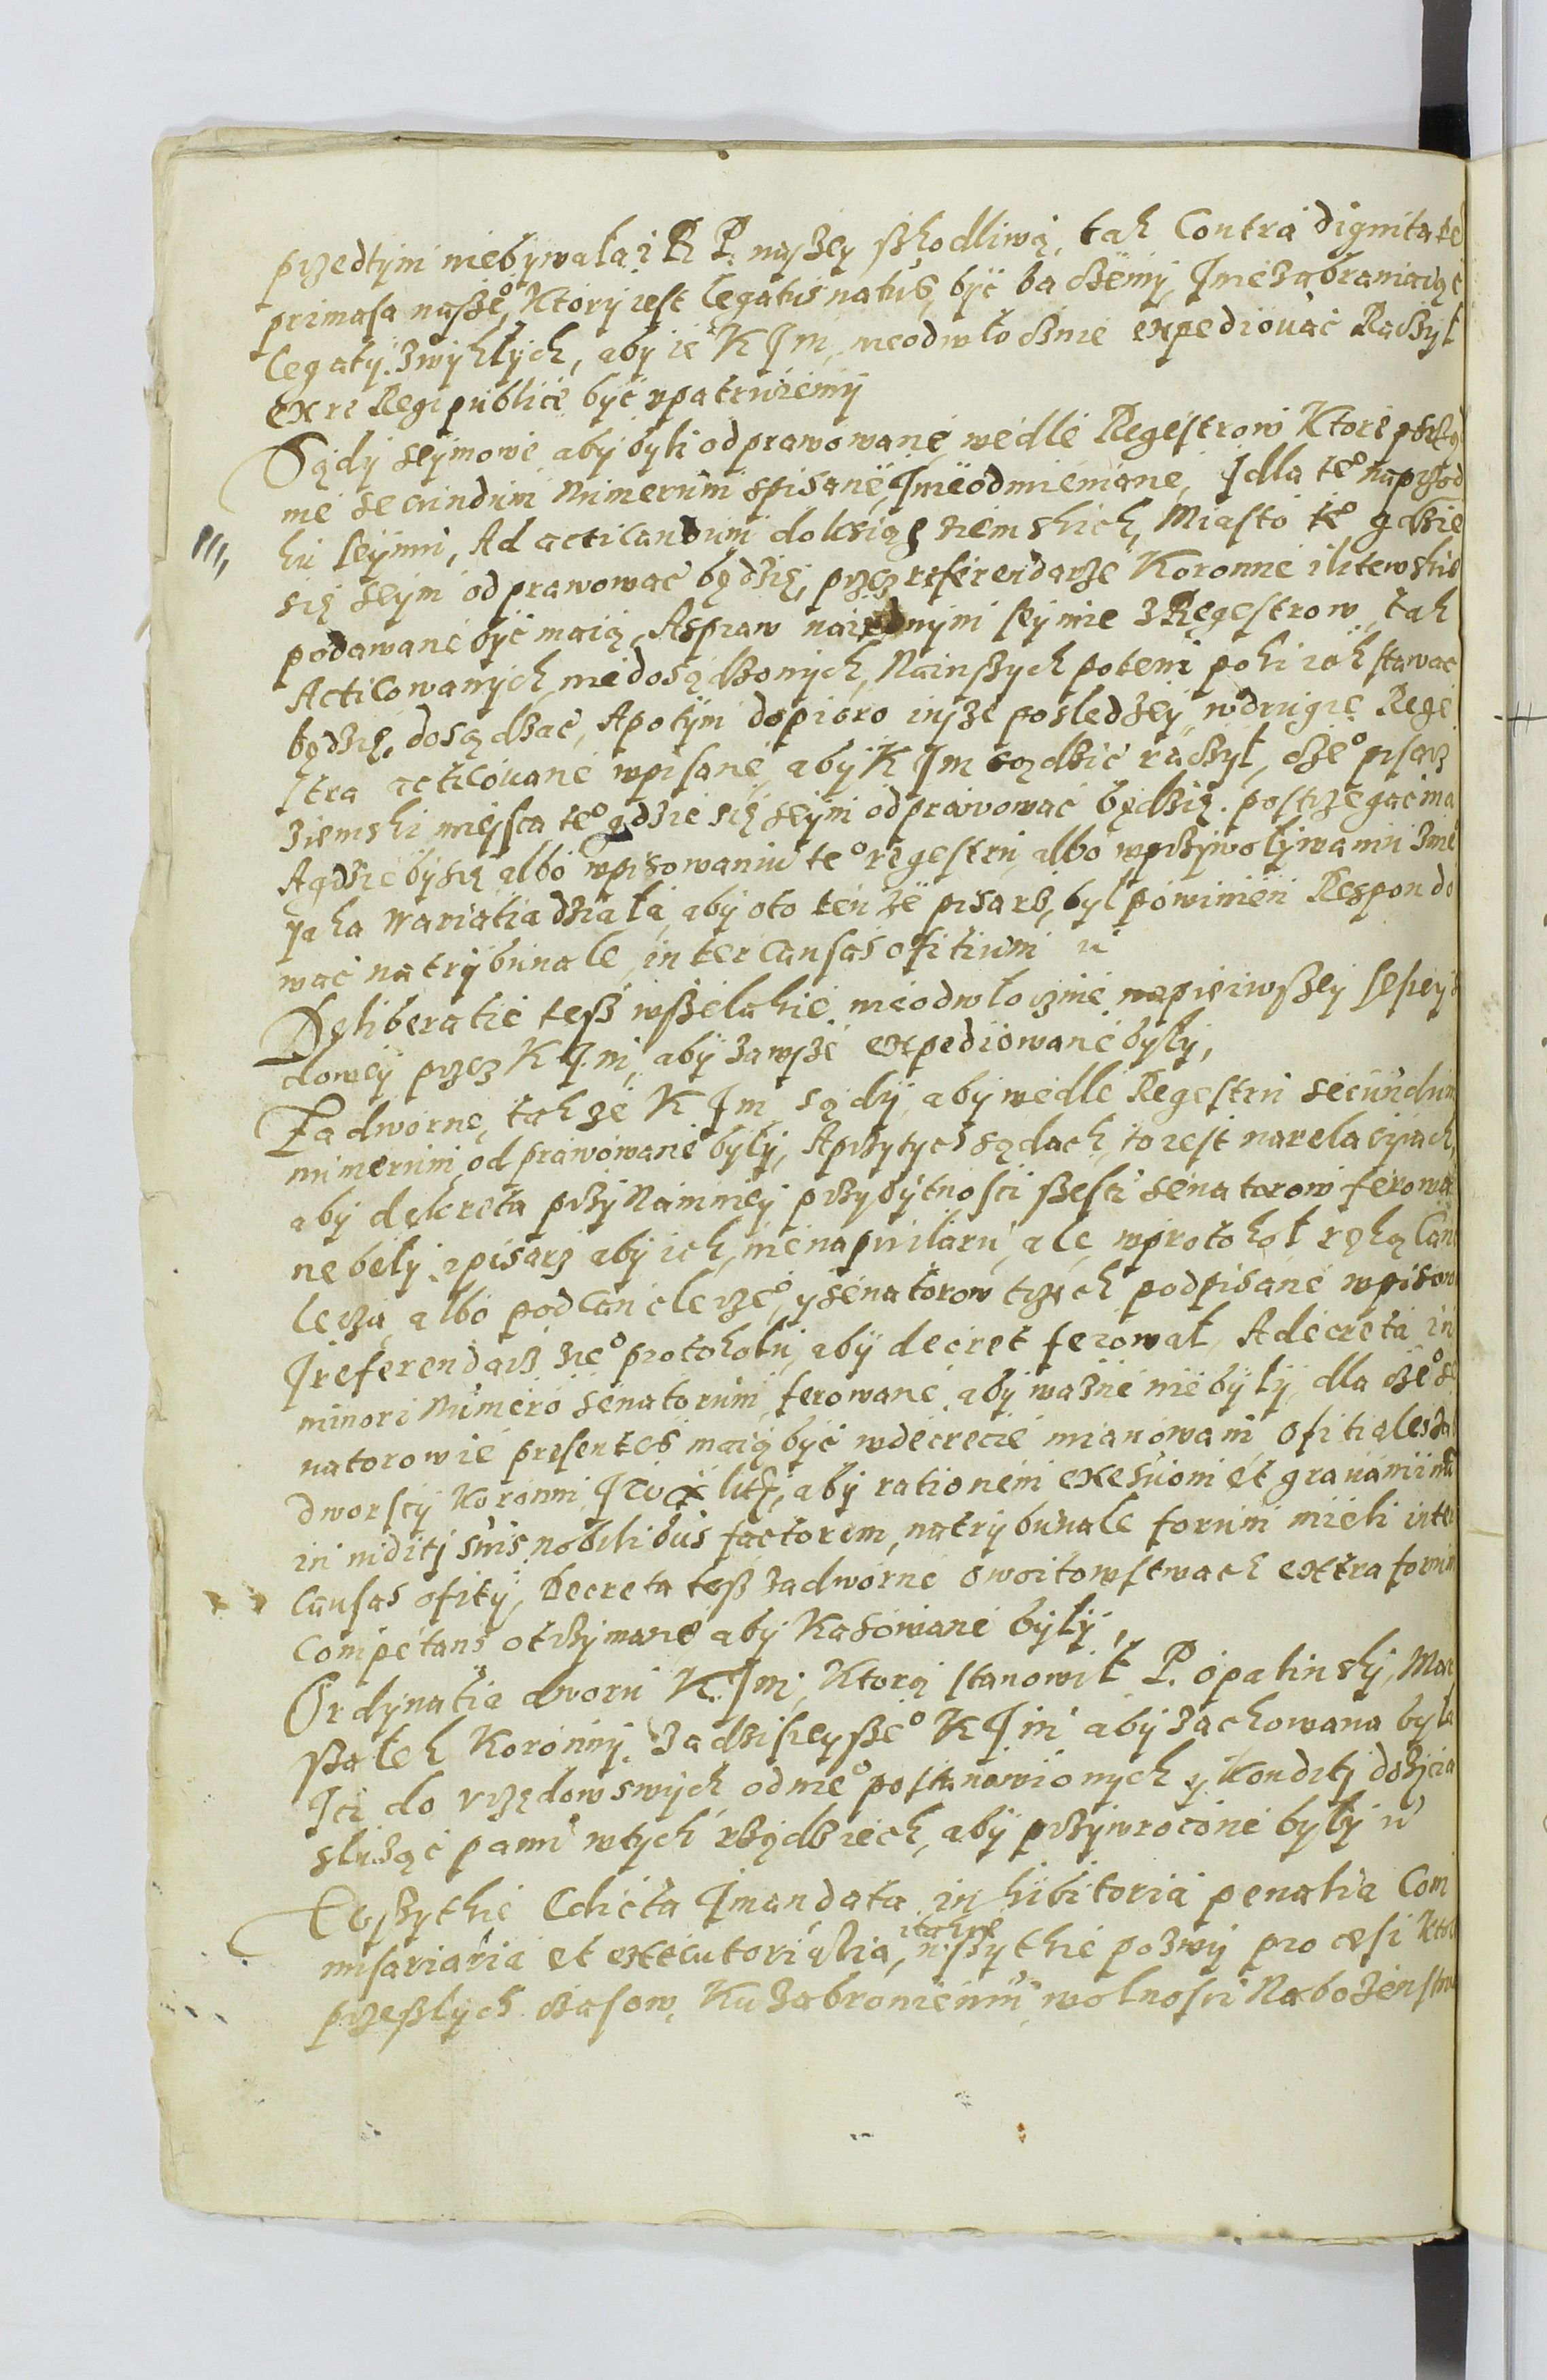 przedtym niebywałą i R P. naszey szkodliwą, tak Contra dignitate
primasa nasze͞o, Ktory iest legatus natus, być baczemy, I nie zabraniaiąc
legaty zwykłych, aby ie K J m, nieodwłocznie expediować Raczył
ex re Regipublice być vpatruiemy
Sądy seymowe aby byli odprawowane, wedle Regestrow Ktore porząd
nie secundum Numerum spisane, I nieodmienione, I dla te͞o na począt
ku seymu, Ad acticandum do ksiąg ziemskich, Miasto te͞o gdzie
się seym odprawować będzie, przez referendarze Koronne i litewskie
podawane być maią, A spraw na iednym seymie z Regestrow, tak
Acticowanych, niedosądzonych, Na inszych potem poki ich stawać
będzie, dosądzać, A potym dopioro insze posledzey, w drugie Rege
stra acticovane wpisane, aby K J m sądzić raczył, cze͞o pisarz
ziemski miejsca te͞o gdzie się seym odprawować będzie. postrzegać ma
A gdzie by się albo wpisowaniu te͞o regestru, albo w przywoływaniu ...
jaka Wariatia działa, aby oto tenże pisarz, był powinien Respondo
wać na trybunale, inter Causas ofitium
Deliberatie tesz wszelakie nieodwłocznie napierwszey ...
dowey przez K J m, aby zawsze expediowane były,
Zadworne, takze K J m, sądy, aby wedle Regestru secundum
numerum, odprawowane były, A przy tych sądach, to iest na relacyiach,
aby dekreta przy Namniey przy bytnosci szesci senatorow ferowa
ne beły, i pisarz aby ich, nie na pulilaru, ale, w protokoł ręką Can
lerza, albo podcanclerze͞o, y senatorow trzech podpisane wpisow
I referendarz ze͞o protokołu, aby decret ferował, A decreta in
minori Numero senatorum, ferowane, aby wazne nie były, dla cze͞o se
natorowie presentes maią być w decrecie mianowani, Ofitiales za
dworscy Koronni, I W X Litt, aby rationem exesuom et gravaminum
in ... suis nobilibus factorem, na trybunale forum mieli inter
Causas ofity, Decreta tesz zadworne o woitowstwach extra forum
Competans otrzymane aby Kasowane były,
Ordynatia dworu K. J m, Ktorą stanowił P. Opalinsky, Mar
szałek Koronny, za dzisieysze͞o K J m aby zachowana była
I ci do vrzędow swych od nie͞o postanowionych y Kondity dożycia
sluząc panu w tych vrzędziech, aby przywrocone były
Wszythkie Edicta I mandata inhibitoria penalia Com
misariaria et executorialia, itakze wszythkie pozwy procesi Ktore
przeszlych czasow, Ku zabronieniu, wolnosci Nabozenstwa